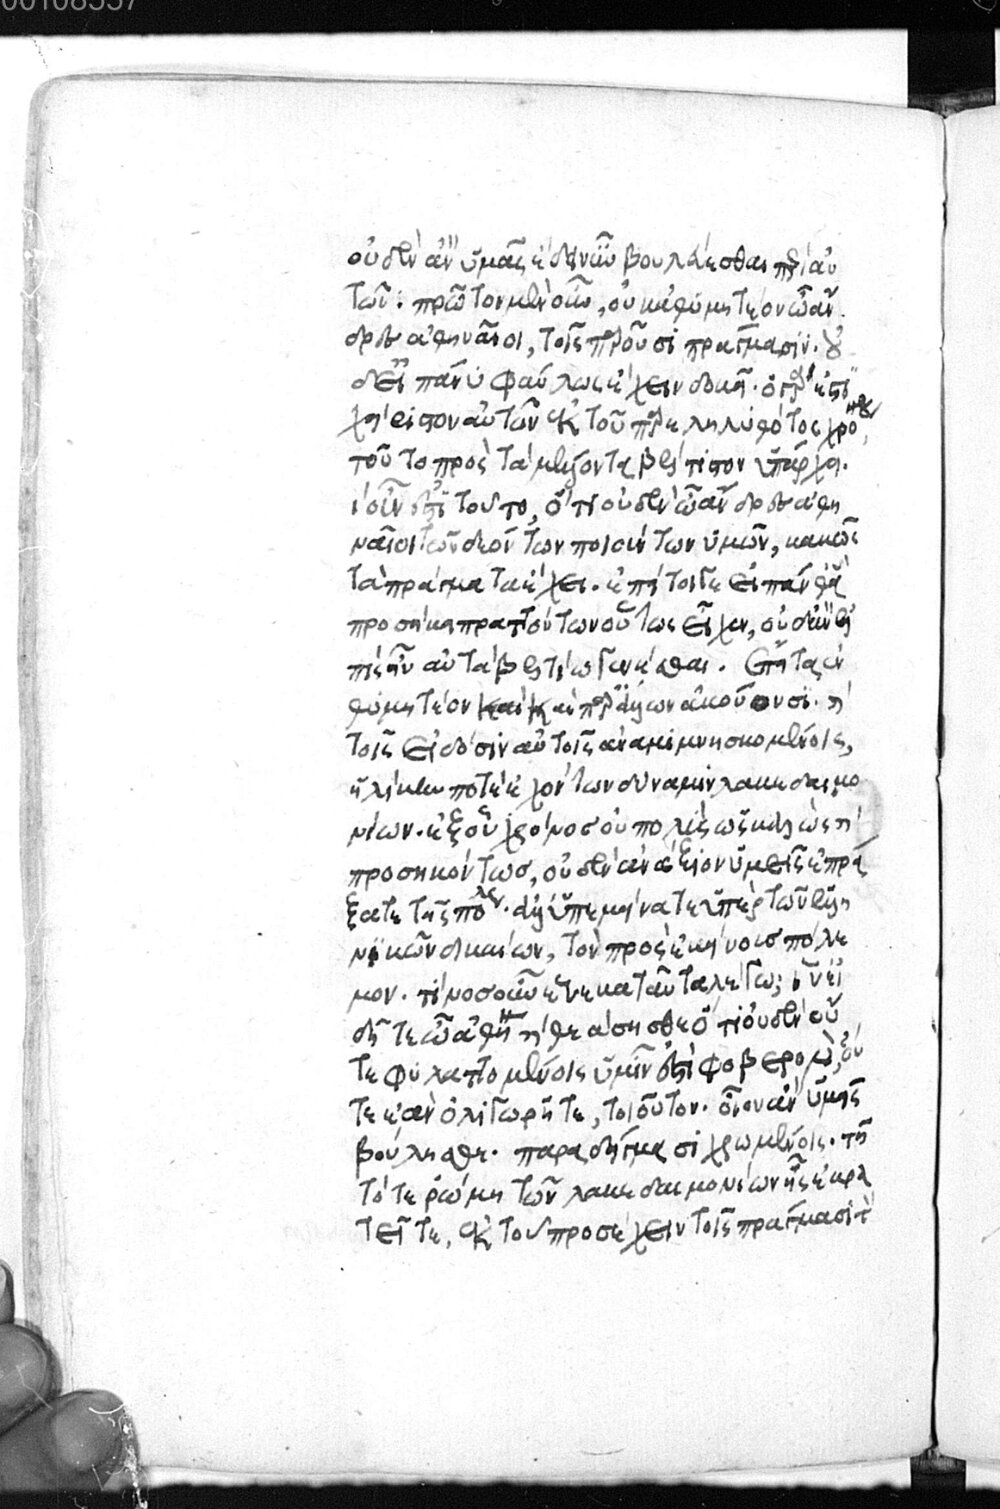 00108557
οὐδὲν ἂν ὑμᾶς ἔδει νῦν βουλεύεσθαι περὶ αὐ
τῶν: πρῶτον μὲν οὖν, οὐκ ἀθυμητέον ὦ ἄν
δρες ἀθηναῖοι, τοῖς παροῦσι πράγμασιν. οὐ
δεῖ πάνυ φαύλως ἔχειν δοκεῖ. ὃ γάρ ἐστι
χείριστον αὐτῶν ἐκ τοῦ παρεληλυθότος χρόνου,
τοῦτο πρὸς τὰ μέλλοντα βέλτιστον ὑπάρχει.
τί οὖν ἐστὶ τοῦτο, ὅτι οὐδὲν ὦ ἄνδρες ἀθη
ναῖοι τῶν δεόντων ποιούντων ὑμῶν, κακῶς
τὰ πράγματα ἔχει. ἐπεί τοι γε εἰ πάνθ' ἃ
προσῆκε πραττόντων οὕτως εἶχεν, οὐδ' ἂν ἐλ
πὶς ἦν αὐτὰ βελτίω γενέσθαι. ἔπειτα ἐν
θυμητέον καὶ παρ' ἄλλων ἀκούουσι. ἢ
τοῖς εἰδόσιν αὐτοῖς ἀναμιμνησκομένοις,
ἡλίκην ποτὲ ἐχόντων δύναμιν λακεδαιμο
νίων. ἐξ οὗ χρόνος οὐ πολὺς ὡς καλῶς ἢ
προσηκόντως, οὐδὲν ἀνάξιον ὑμεῖς ἐπρά
ξατε τῆς πόλεως. ἀλλ' ὑπεμείνατε ὑπὲρ τῶν ἑλλη
νικῶν δικαίων, τὸν πρὸς ἐκείνους πόλε
μον. τίνος οὖν ἕνεκα ταῦτα λέγω; ἵν' εἰ
δῆτε ὦ ἀθηναῖοι θεάσησθε ὅτι οὐδὲν οὔ
τε φυλαττομένοις ὑμῖν ἐστὶ φοβερὸν, οὔ
τε ἐὰν ὀλιγωρῆτε, τοιοῦτον. οἷον ἂν ὑμεῖς
βούλησθε. παραδείγμασι χρώμενοις. τῇ
τότε ῥώμη τῶν λακεδαιμονίων ἧς ἐκρα
τεῖτε, ἐκ τοῦ προσέχειν τοῖς πράγμασι τὸ